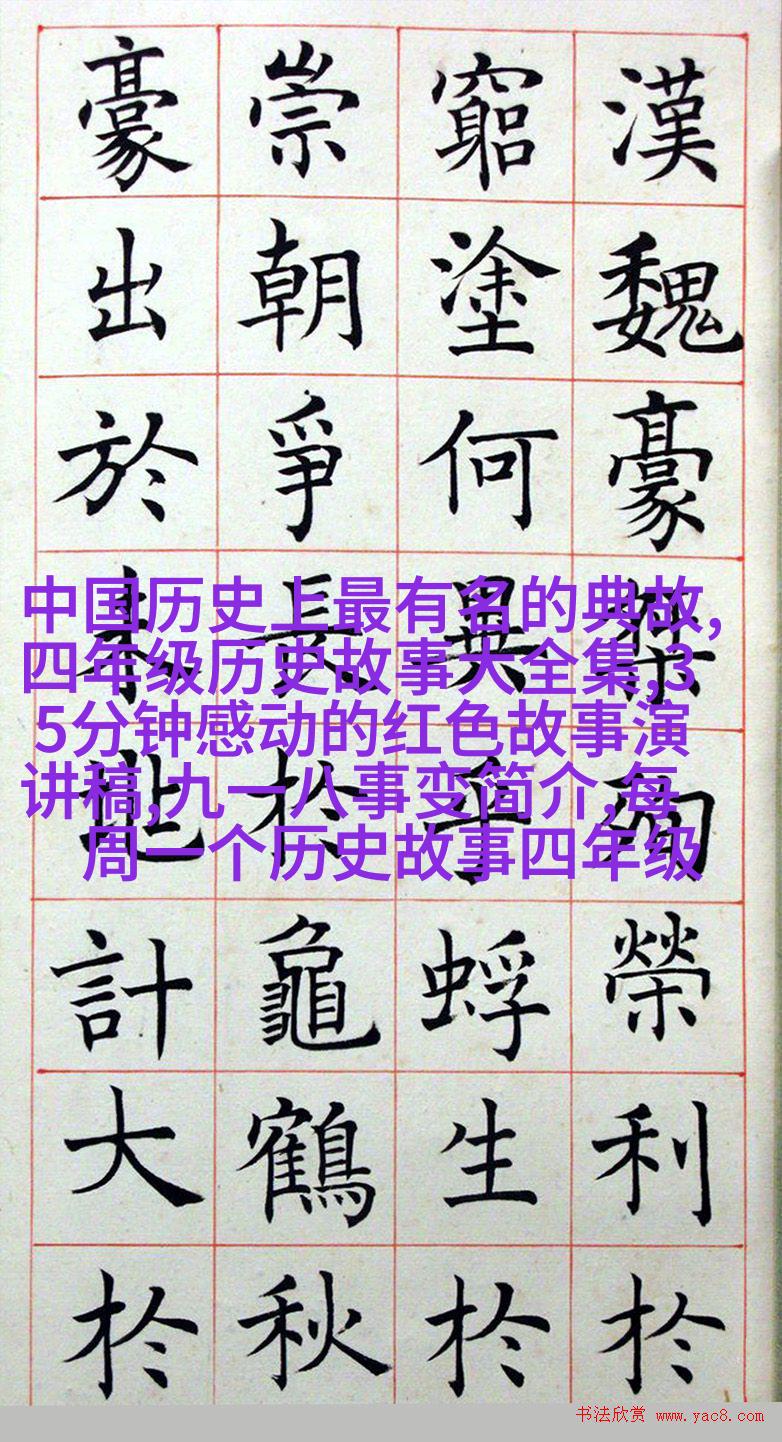 漢魏豪榮利於
窮塗何異乎蜉生於
崇朝爭長於龜鶴秋
豪出於未計大於
中国历史上最有名的典故,
四年级历史故事大全集,3
5分钟感动的红色故事演
讲稿,九一八事变简介,每
周一个历史故事四年级
书法欣赏 www.yac8.com